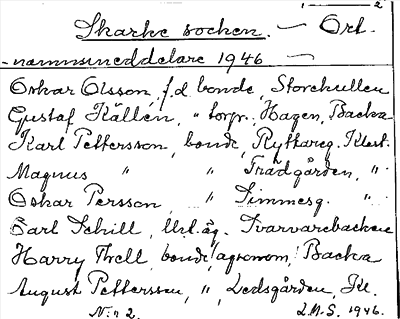 2
Skarke socken. — Ort-
namnsmeddelare 1946 —
Oskar Olsson, f.d. bonde, Storekullen
Gustaf Källén, " torpr. Hagen, Backa
Karl Pettersson, bonde, Ryttareg. Klost.
Magnus " " Trädgården, "
Oskar Persson, " Simmesg. "
Carl Schill, Urt.äg. Svarvarebacken
Harry Thell, bonde/agronom, Backa
August Pettersson, ", Ledsgården, Kl.
N:r 2. L.M.S. 1946.